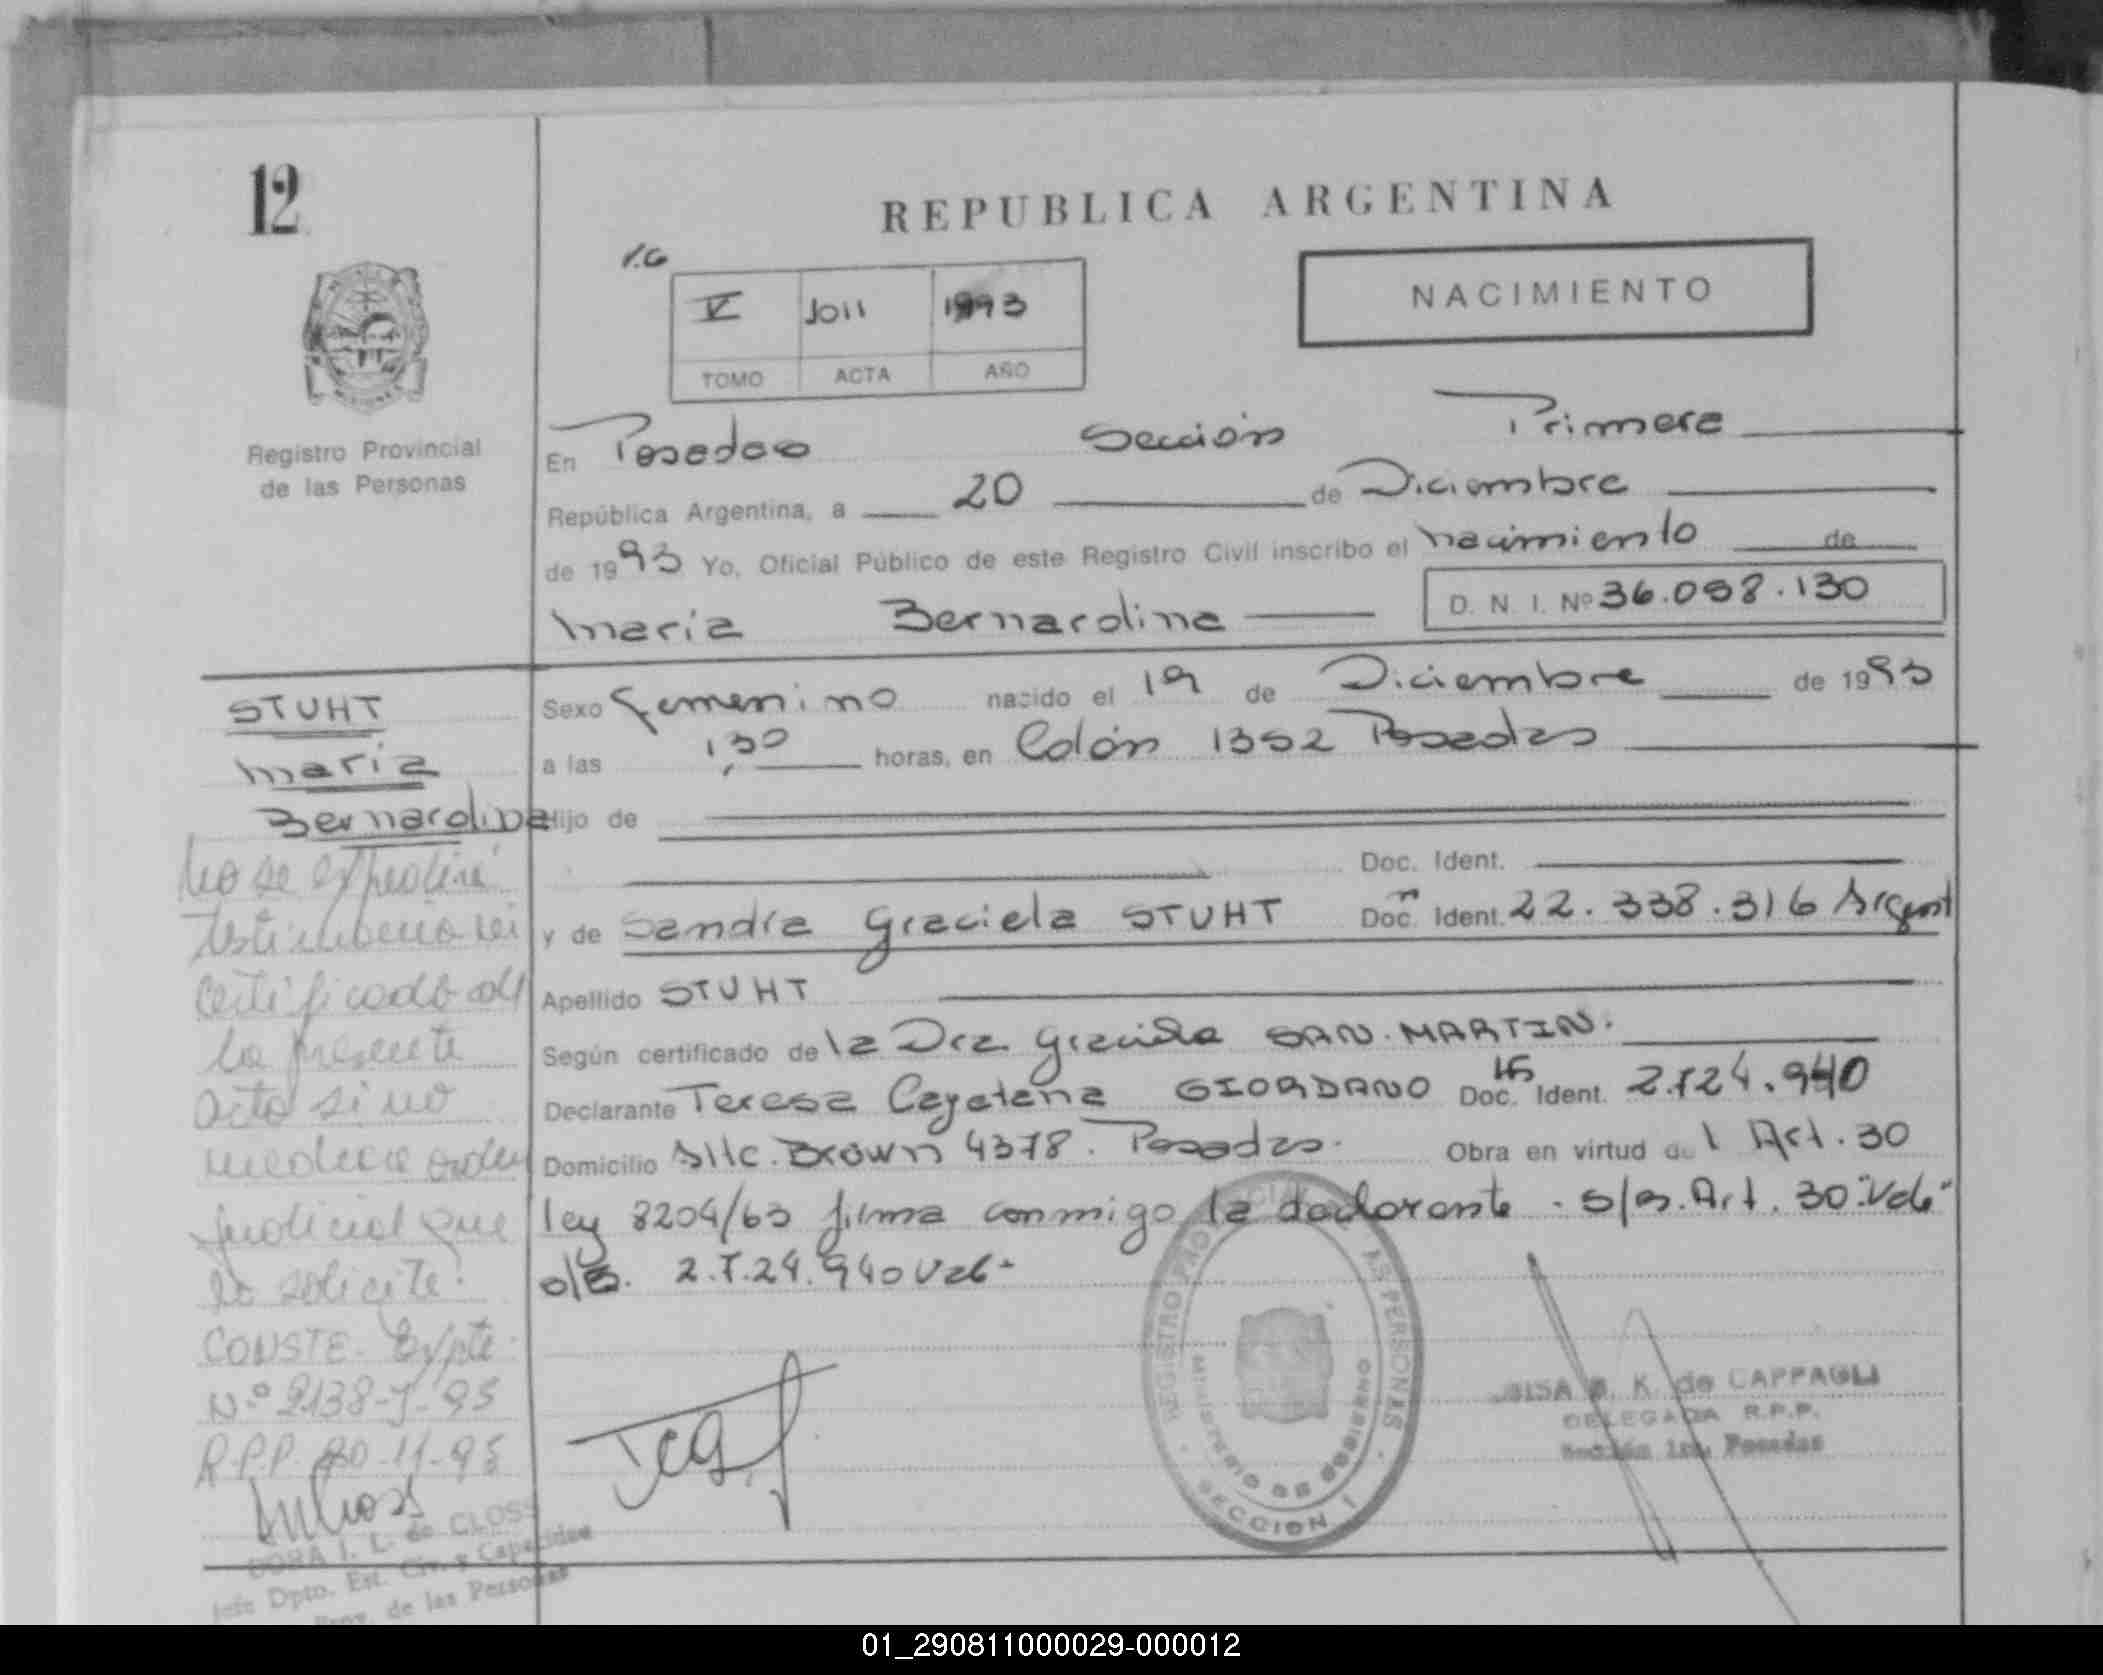 12
REPUBLICA ARGENTINA
NACIMIENTO
V 1011 1993
TOMO ACTA AÑO
Registro Provincial
de las Personas
En Posadas Sección Primera
República Argentina, a 20 de Diciembre
de 1993 Yo, Oficial Público de este Registro Civil inscribo el nacimiento de
María Bernardina D. N. I. Nº 36.098.130
STUHT
María
Bernardina
Sexo femenino nacido el 19 de Diciembre de 1993
a las 1,30 horas, en Colón 1352 Posadas
Hijo de
Doc. Ident.
y de Sandra Graciela STUHT Doc. Ident. 22.338.316 Argent
Apellido STUHT
Según certificado de la Dra. Graciela SAN. MARTIN.
Declarante Teresa Cayetana GIORDANO Doc. Ident. 2.724.940
Domicilio Alte. Brown 4378. Posadas. Obra en virtud del Art. 30
ley 8204/63 firma conmigo la declarante. s/b. Art. 30 "Vale"
s/b. 2.7.24.940 Vale
No se expedirá
testimonio ni
certificado de
la presente
acta si no
media orden
judicial que
lo solicite.
CONSTE. Expte.
Nº 2138-J-95
R.P.P. 20-11-95
DORA I. L. de CLOSS
Jefe Dpto. Est. Civ. y Capacidad
Prov. de las Personas
REGISTRO PROVINCIAL DE LAS PERSONAS
MINISTERIO DE GOBIERNO
SECCION 1
K. de CAPPAGLI
DELEGADA R.P.P.
Sección 1ra. Posadas
01_290811000029-000012